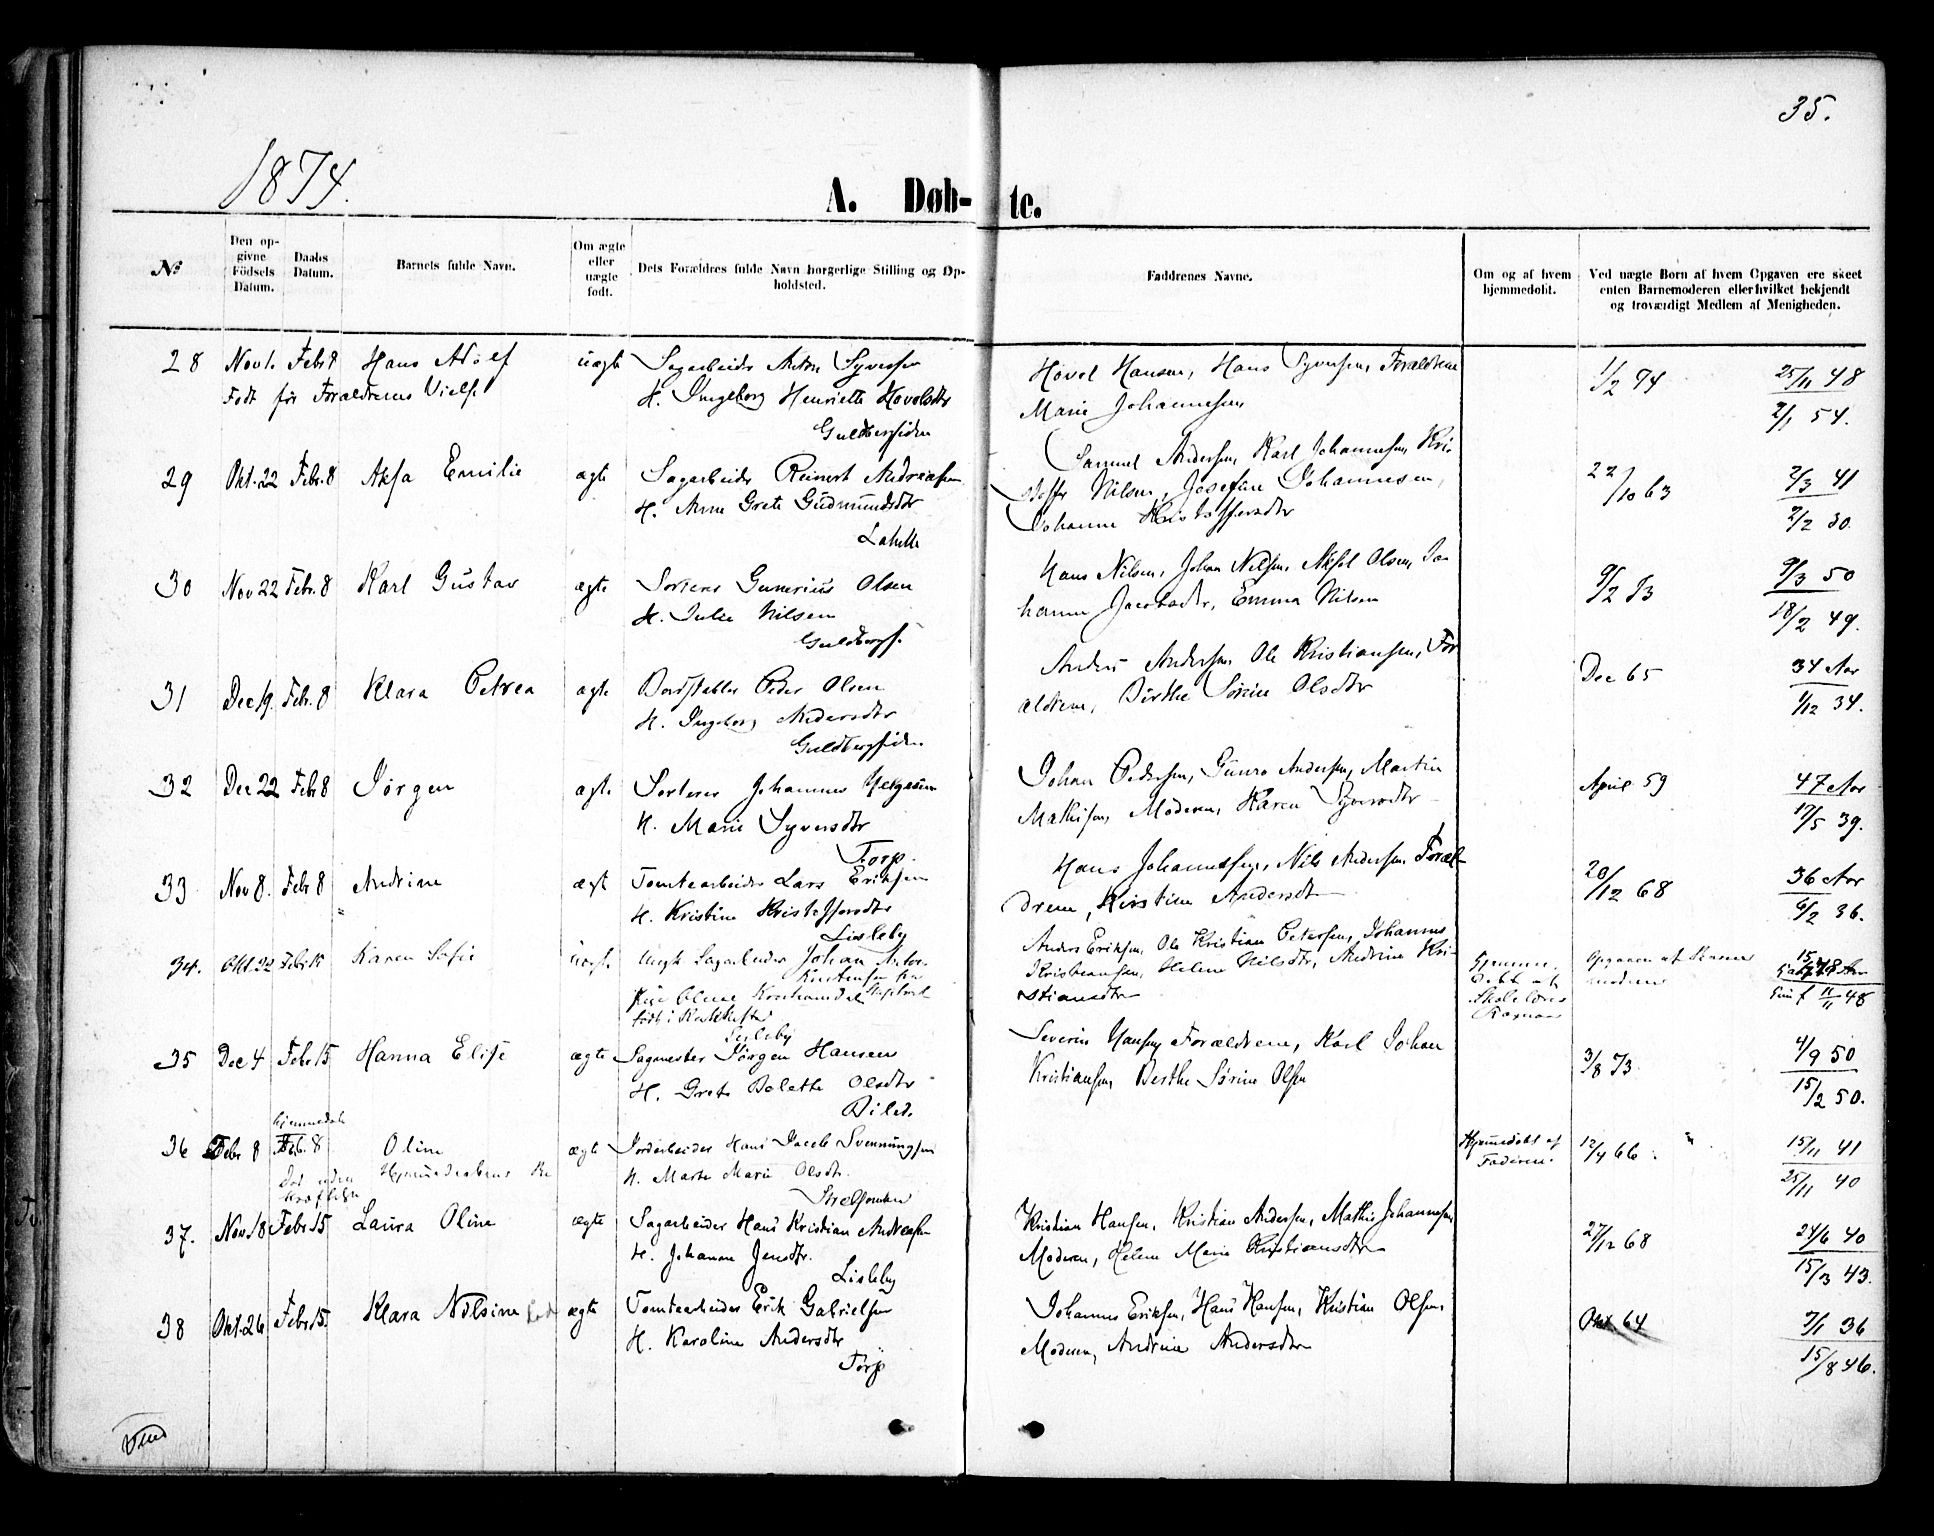 35.
1874.
A. Døb- te.
№
Den opgivne Födsels Datum.
Daabs Datum.
Barnets fulde Navn.
Om ægte eller uægte født.
Dets Forældres fulde Navn borgerlige Stilling og Opholdsted.
Faddrenes Navne.
Om og af hvem hjemmedöbt.
Ved uægte Born af hvem Opgaven ere skeet enten Barnemoderen eller hvilket bekjendt og troværdigt Medlem af Menigheden.
28 Nov 1. Febr 8 Hans Adolf uægte Sagarbeider Anton Syversen Hovel Hansen, Hans Syversen, Forældrene 1/2 74 25/11 48
Født før Forældrenes Vielse H. Ingeborg Henriette Hovelsdtr Marie Johannesen 2/1 54.
Guldbergsiden
29 Okt. 22 Febr. 8 Aksa Emilie ægte Sagarbeider Reinert Andreasen Samuel Andersen, Karl Johannesen, Kri- 22/10 63 2/3 41
H. Anne Grete Gudmundsdtr stoffer Nilsen, Josefine Johannesen, 2/2 30.
Johanne Kristoffersdtr
30 Nov 22 Febr. 8 Karl Gustav ægte Sorterer Gunerius Olsen Hans Nilsen, Johan Nilsen, Aksel Olsen, Jo- 9/2 73 9/3 50
H. Julie Nilsen hanne Jacobsdtr, Emma Nilsen 18/2 49.
Guldbergs.
31 Dec 19. Febr. 8 Klara Petrea ægte Bordstabler Peder Olsen Anders Andersen, Ole Kristiansen, For- Dec 65 34 Aar
H. Ingeborg Andersdtr ældrene, Birthe Sørine Olsdtr 1/12 34.
Guldbergsiden
32 Dec 22 Febr 8 Jørgen ægte Sorterer Johannes Johan Pedersen, Gunro Andersen, Martin April 59 47 Aar
H. Marie Syversdtr Mathisen, Moderen, Karen Syversdtr 17/5 39.
Torp.
33 Nov 8. Febr 8 Andrine ægte Tomtearbeider Lars Eriksen Hans Johannesen, Nils Andersen, Foræl- 28/12 68 36 Aar
H. Kristine Kristoffersdtr drene, Kirstine Andersdtr 6/2 36.
Lisleby
34. Okt. 22 Febr 15 Karen Sofie uægte Ungk Sagarbeider Johan Anton Anders Eriksen, Ole Kristian Petersen, Johannes Hjemme- Opgaven af Barne-
Kristiansen, Helene Nilsdtr, Andrine Kri- døbt af moderen
Pige Oline stiansdtr Skolelærer 11/11 48
Lisleby
35 Dec 4 Febr 15 Hanna Elise ægte Sagmester Jørgen Hansen Severin Hansen, Forældrene, Karl Johan 3/8 73. 4/9 50
H. Grete Bolette Olsdtr Kristiansen, Berthe Sørine Olsen 15/2 50.
hjemmedøb
36 Febr 8 Feb. 8 Oline ægte Jordarbeider Hans Jacob Svenningsen Hjemmedøbt af Faderen. 12/4 66. 15/11 41
Død uden Hjemmedaabens Be kræftelse H. Marte Marie Olsdtr. 25/11 40
37. Nov. 18 Febr 15 Laura Oline ægte Sagarbeider Hans Kristian Andreasen Kristian Hansen, Kristian Andersen, Mathis Johannesen, 27/12 68 24/6 40
H. Johanne Jensdtr. Moderen, Helene Marie Kristiansdtr 15/3 43.
Lisleby
38 Okt. 26 Febr 15. Klara Nilsine ægte Tomtearbeider Erik Gabrielsen Johannes Eriksen, Hans Hansen, Kristian Olsen, Okt 64 7/1 36
H. Karoline Andersdtr Moderen, Andrine Andersdtr 15/8 46.
Torp
Vend